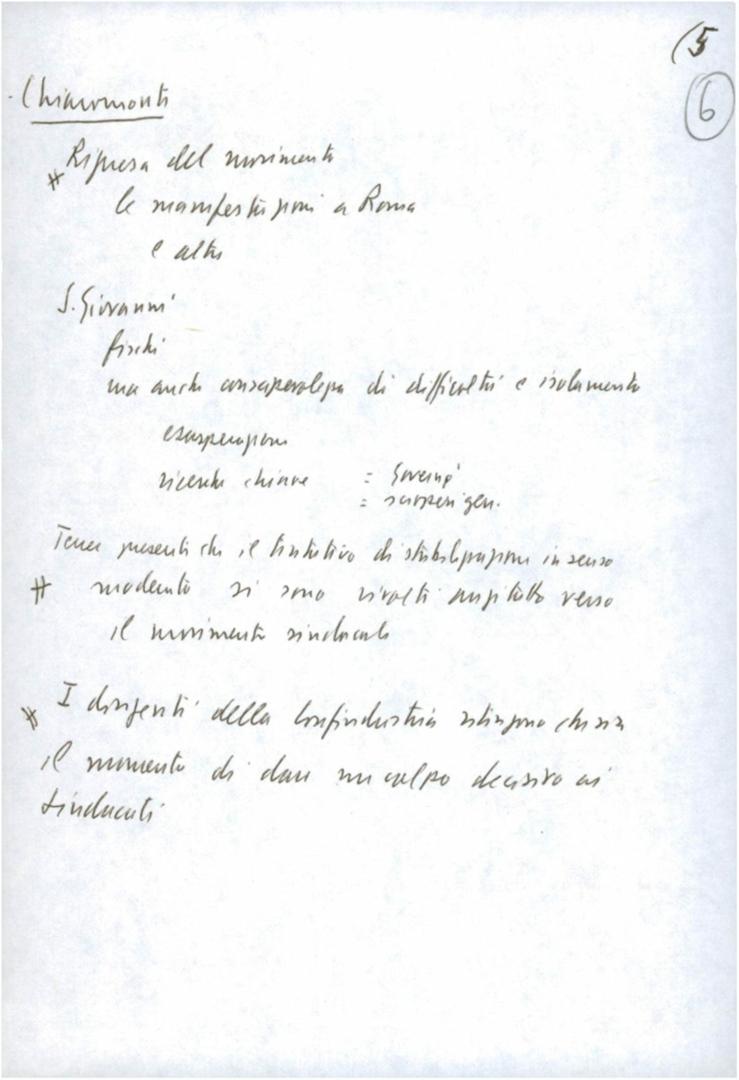 (5
6
Chiaromonte
# Ripresa del movimento
le manifestazioni a Roma
e altre
S. Giovanni
fischi
ma anche consapevolezza di difficoltà e isolamento
esasperazione
ricerche chiave = Governo
= scioperi gen.
Tener presente che il tentativo di stabilizzazione in senso
# moderato si sono rivolti anzitutto verso
il movimento sindacale
# I dirigenti della Confindustria ritengono che sia
il momento di dare un colpo decisivo ai
sindacati